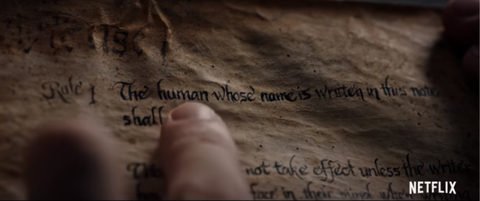 Rule 1 The human whose name is written in this note
shall
This not take effect unless the writer
face in their mind when writing
NETFLIX